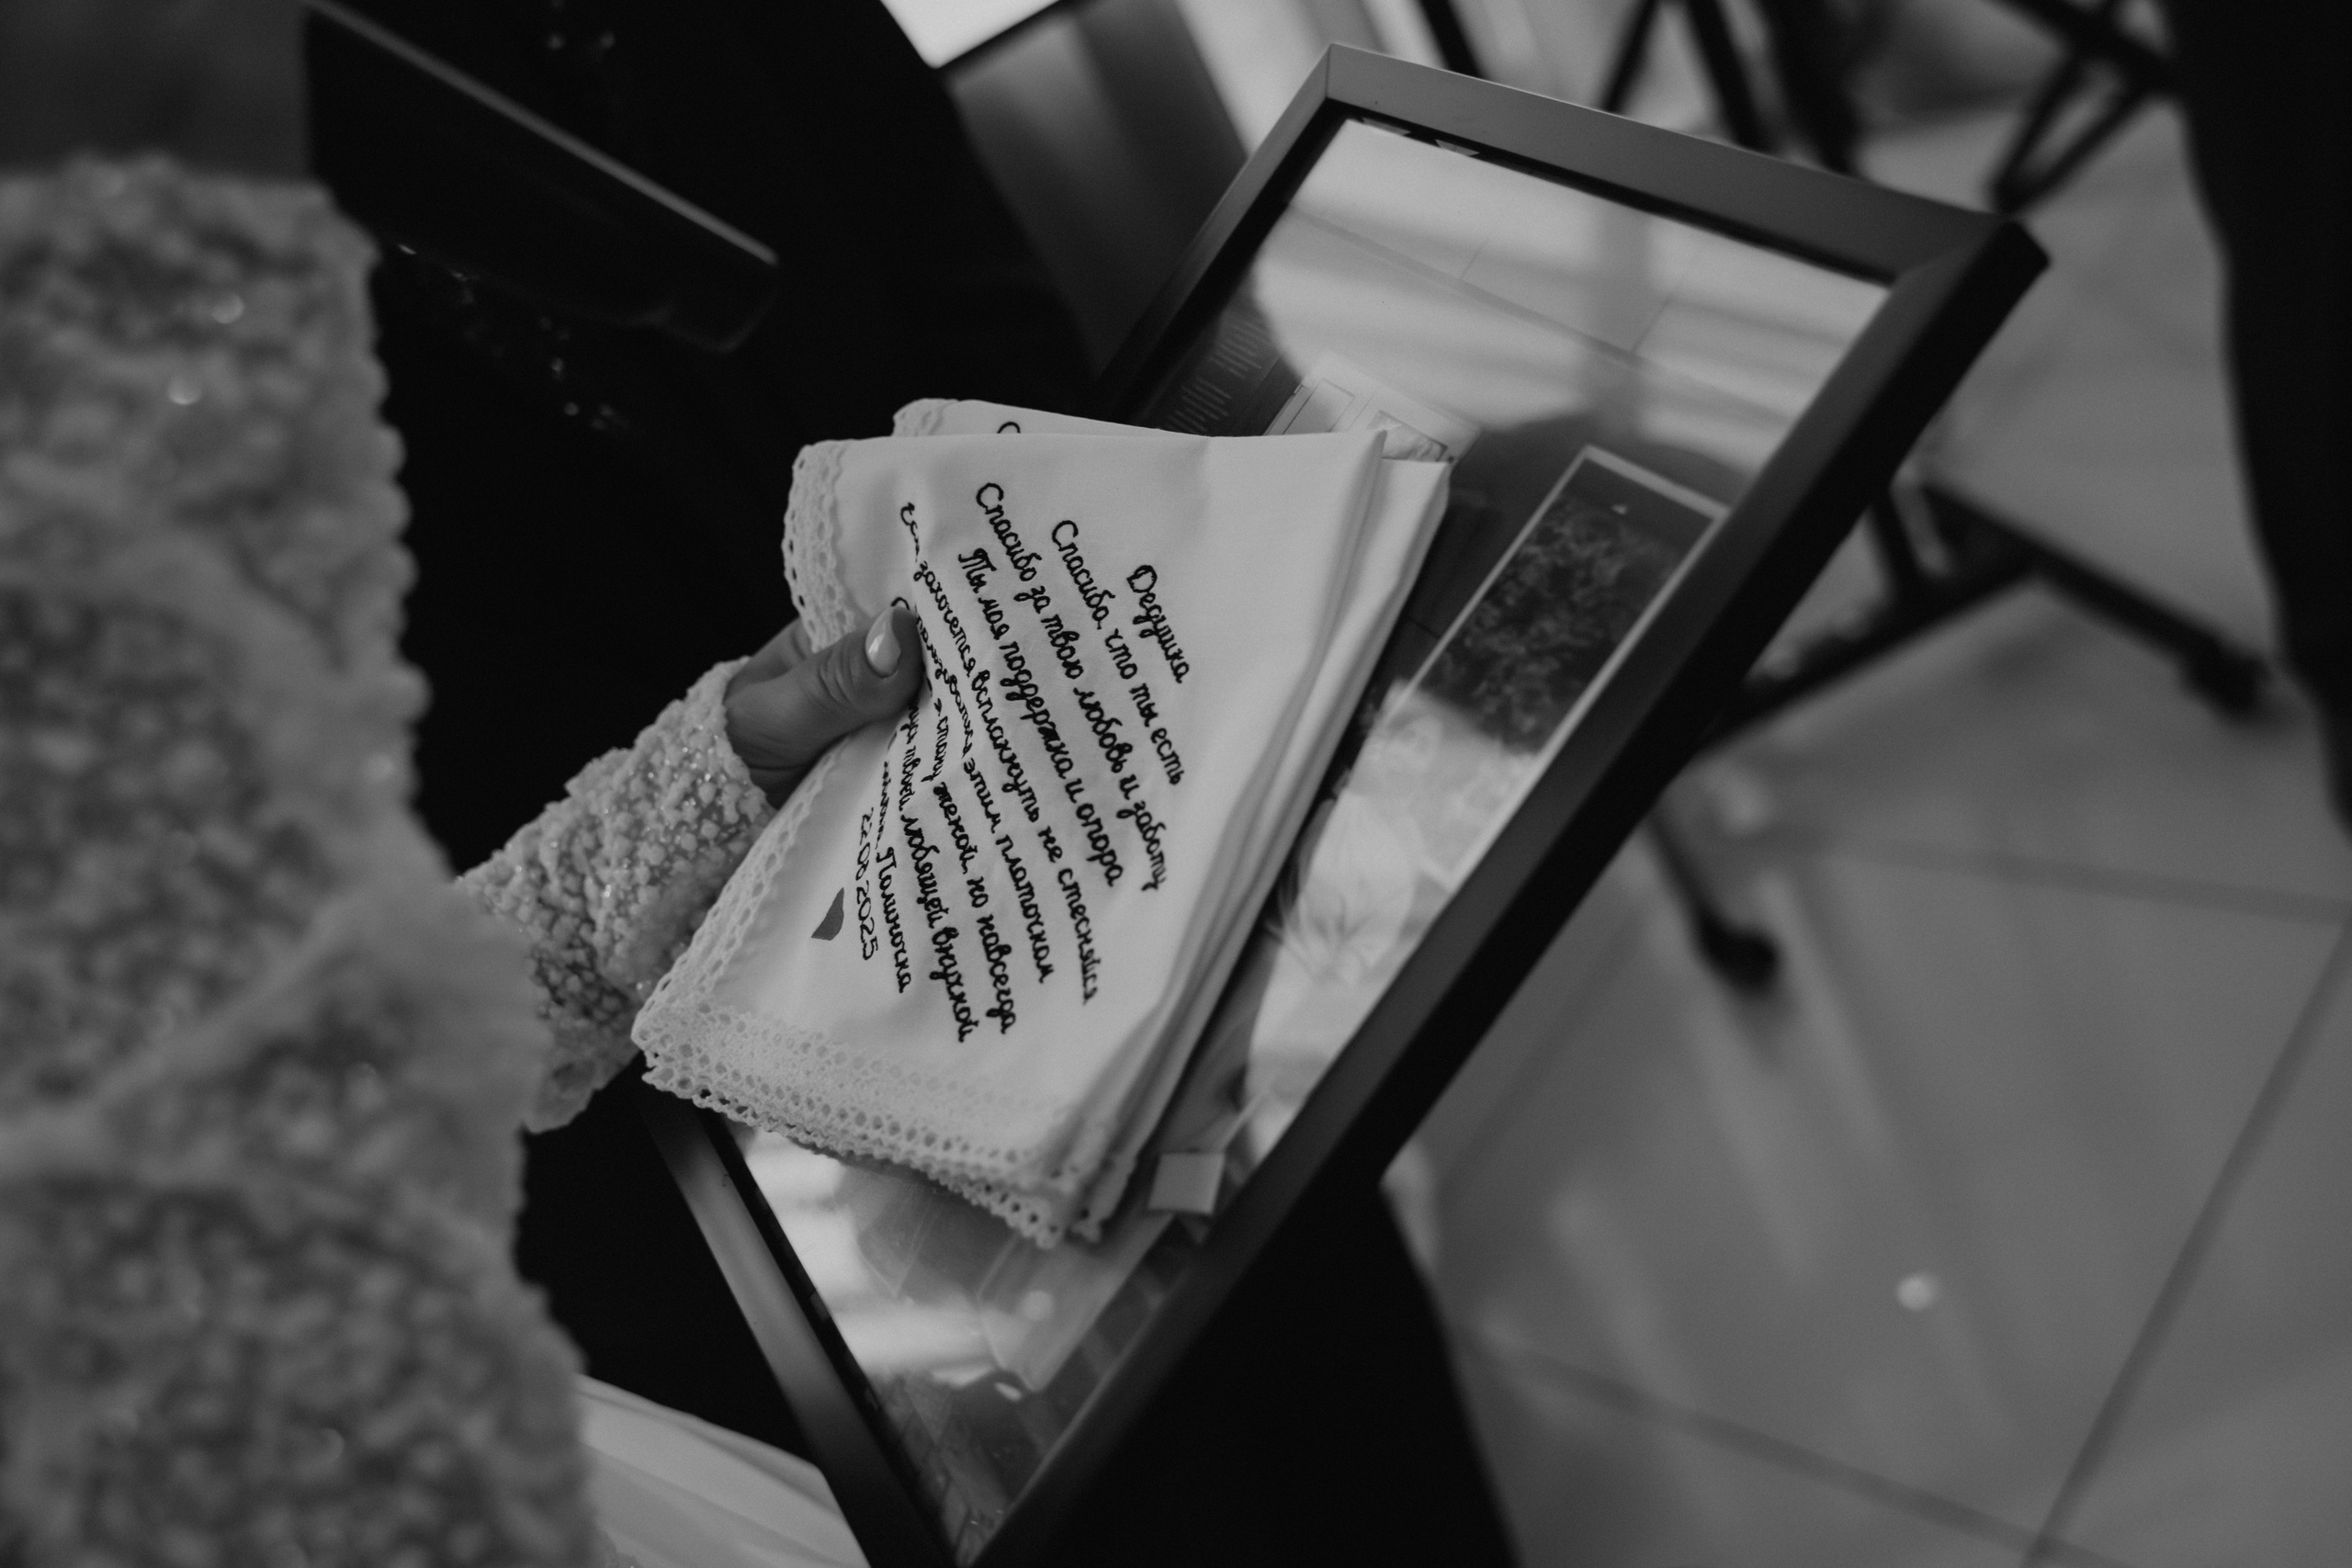 Дедушка
Спасибо, что ты есть
Спасибо за твою любовь и заботу
Ты моя поддержка и опора
захочется всплакнуть не стесняйся
этим платочком
я стану женой, но навсегда
твоей любящей внучкой
Полиночка
22.06.2025